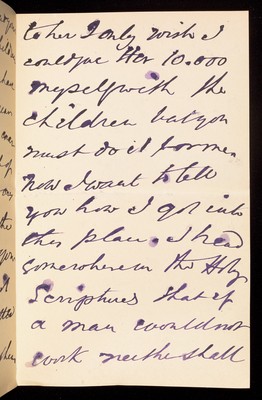 to her I only wish I
could give Her 10.000
myself with the
children but you
must do it for me.
now I want to tell
you how I got into
this place. I read
somewhere in the Holy
Scriptures that if
a man would not
work neithe shall